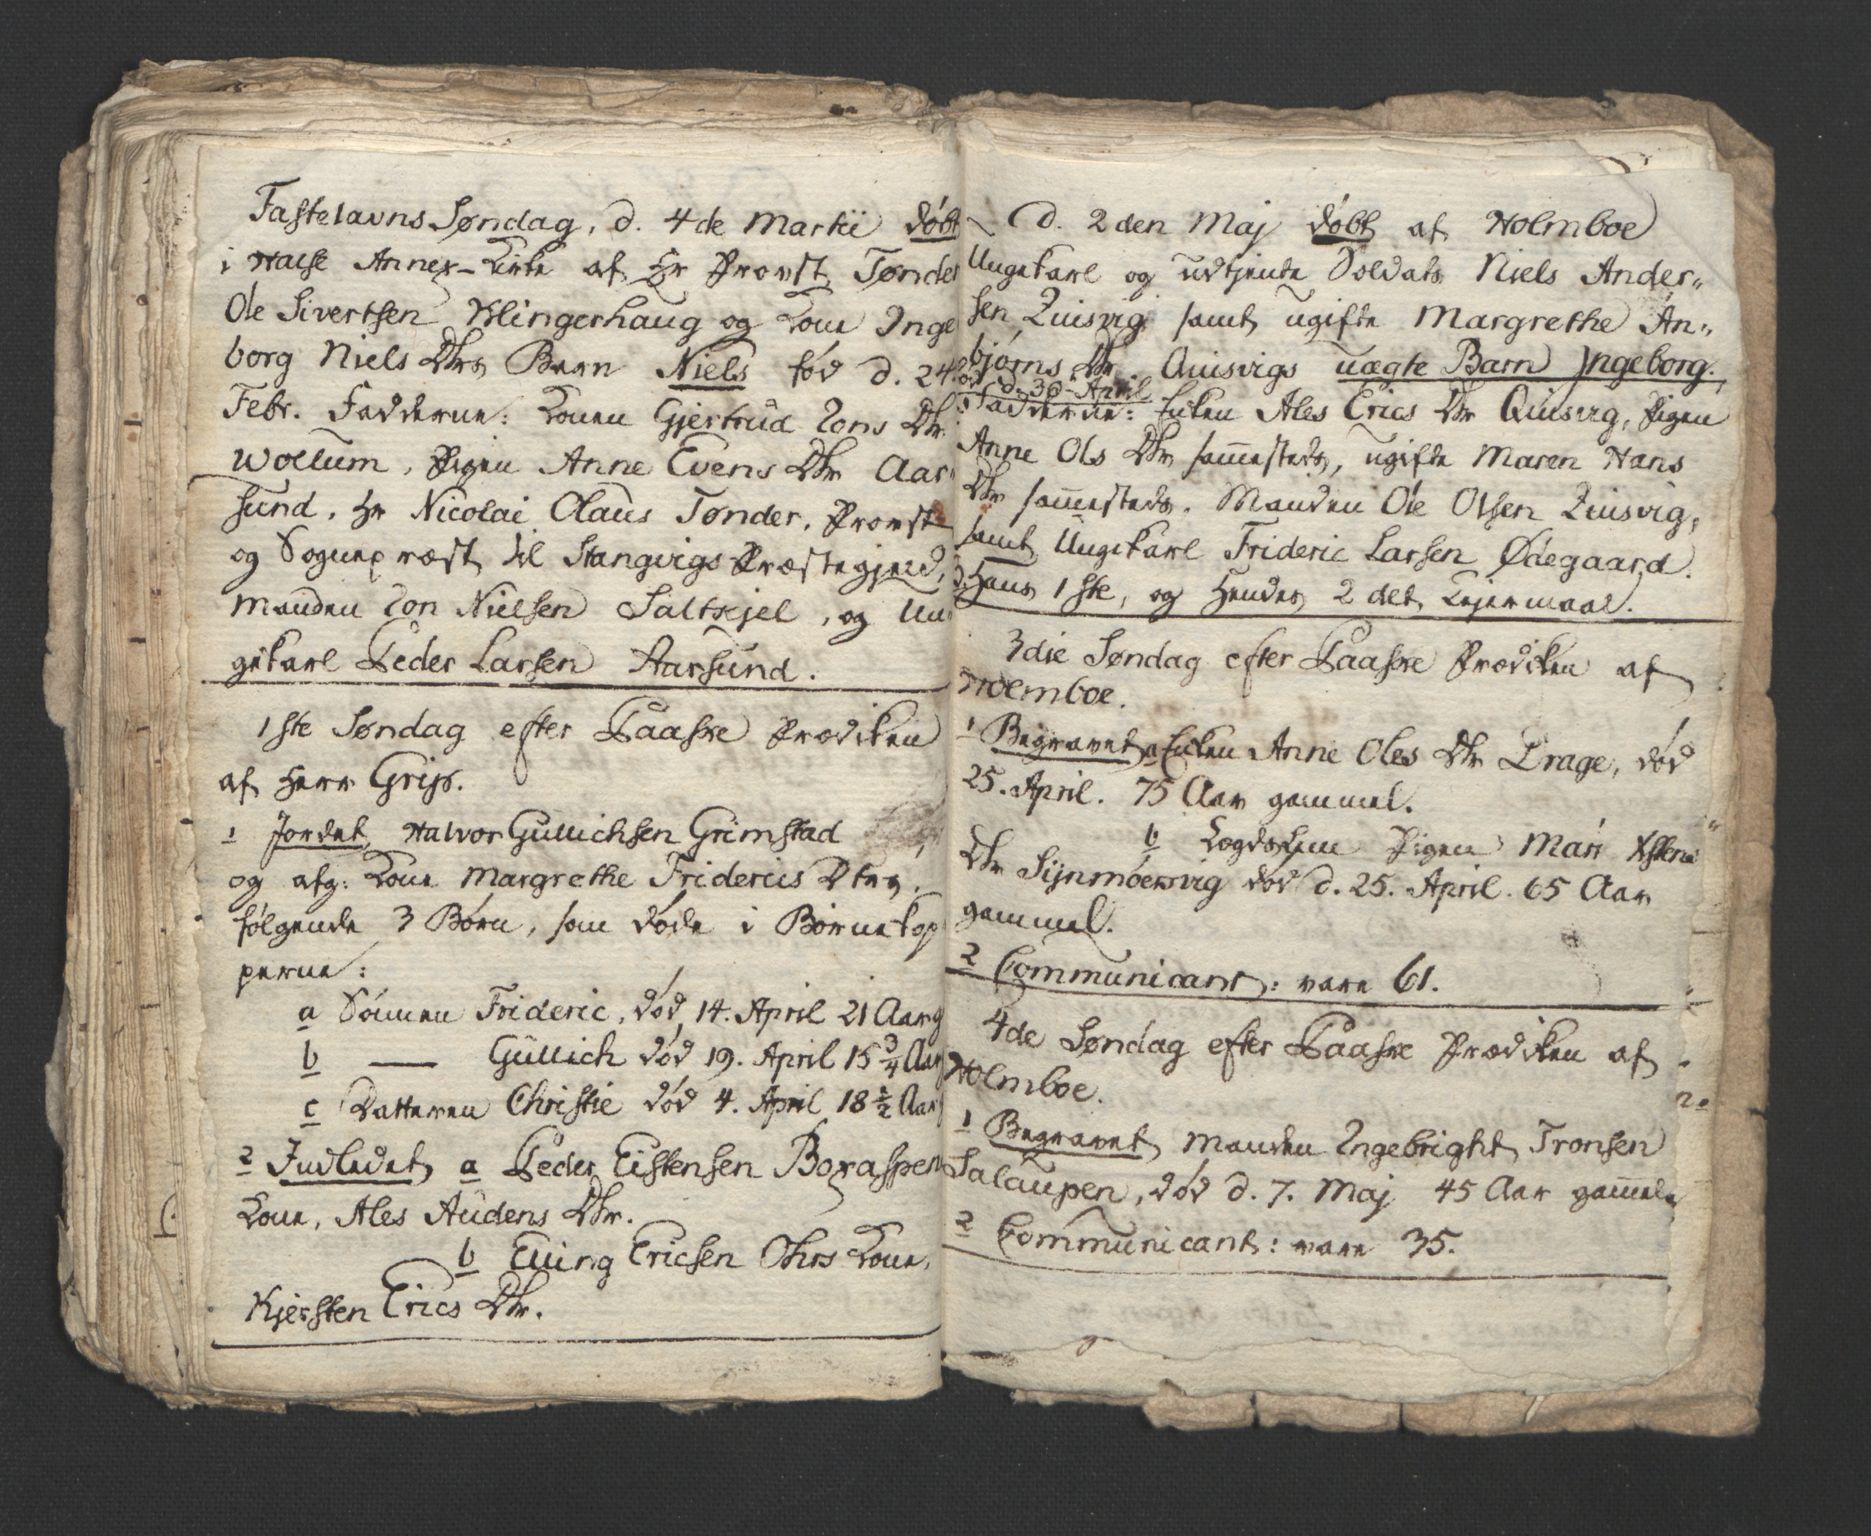 Fastelavns Søndag, d. 4de Martii døbt
i Halse Annex-Kirke af Hr Provst Tønder
Ole Sivertsen Klingerhaug og Kone Inge
borg Niels Dtrs Barn Niels fød d. 24
Febr. Fadderne: Konen Gjertrud Jons Dtr
Wollum, Pigen Anne Evens Dtr Aar
sund, Hr Nicolai Olaus Tønder, Provst
og Sognepræst til Stangvigs Præstegjeld,
Manden Jon Nielsen Saltkjel, og Un
gekarl Peder Larsen Aarsund.
1ste Søndag efter Paaske Prædiken
af Herr Grip.
1 Jordet Halvor Gullichsen Grimstad
og afg: Kone Margrethe Friderics Dtrs
følgende 3 Børn, som døde i Børnekop
perne:
a Sønnen Frideric, død 14. April 21 Aar g
b — Gullich død 19. April 15 3/4 Aar
c Datteren Christie død 4. April 18 1/2 Aar
2 Indledet a Peder Eistensen Boxaspen
Kone, Ales Audens Dtr.
b Elling Ericsen Kone,
Kjersten Erics Dtr.
d. 2den Maj døbt af Holmboe
Ungekarl og udtjente Soldat Niels Ander-
sen Quisvig samt ugifte Margrethe An-
bjørns Dtr. Quisvigs uægte Barn Ingeborg.
d. 30 April
Fadderne: Enken Ales Erics Dtr Quisvig, Pigen
Anne Ols Dtr sammesteds, ugifte Maren Hans
Dtr sammesteds. Manden Ole Olsen Quisvig,
samt Ungekarl Frideric Larsen Ødegaard.
Hans 1ste, og Hendes 2det Lejermaal.
3die Søndag efter Paaske Prædiken af
Holmboe.
1 Begravet a Enken Anne Oles Dtr Drage, død
25. April. 75 Aar gammel.
b Logdslem Pigen Mari
Dtr død d. 25. April. 65 Aar
gammel.
2 Communicant: vare 61.
4de Søndag efter Paaske Prædiken af
Holmboe.
1 Begravet Manden Ingebright Tronsen
Talaupen, død d. 7. Maj 45 Aar gammel
2 Communicant: vare 35.